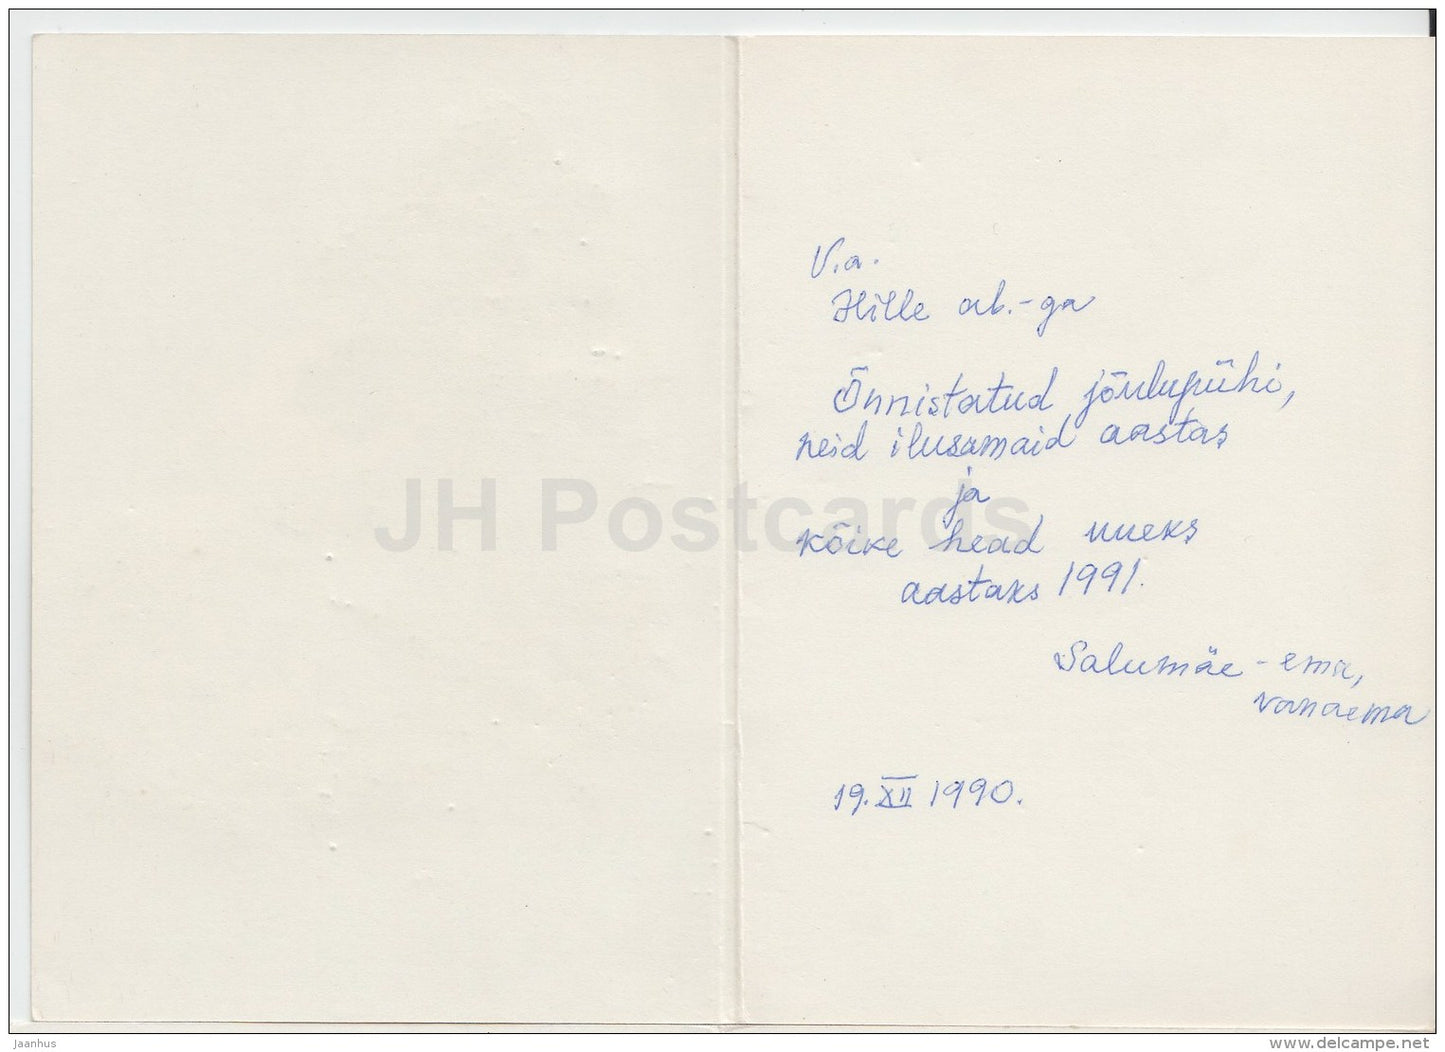 V.a.
Hille ab.-ga
Õnnistatud jõulupühi,
neid ilusamaid aastas
ja
kõike head uueks
aastaks 1991.
Salumäe - ema,
vanaema
19. XII 1990.
JH Postcards
jaanhus
www.delcampe.net